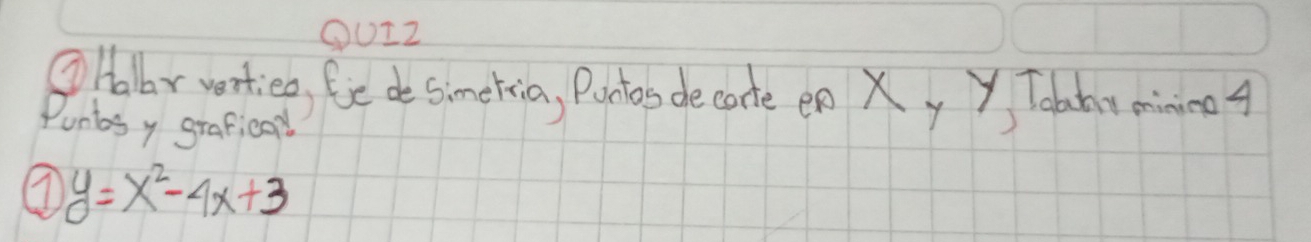 QUIZ
① Hallar vertice, Eje de simetria, Puntos de corte en X y Y, Tabular minimo 4
Puntos y graficar.
① y = x² - 4x + 3